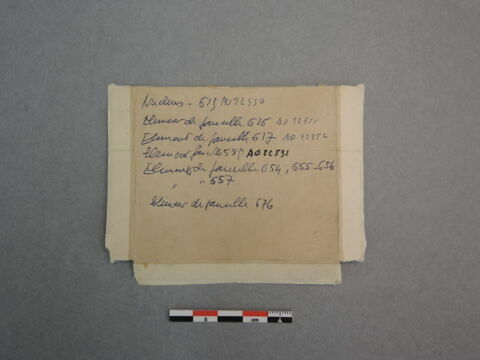 Nucleus - 613 AO 22550
Element de faucille 616 AO 22551
Element de faucille 617 AO 22552
Element faucille 589 AO 22531
Elements de faucille 654, 655-656
" " 657
Element de faucille 676
5 cm